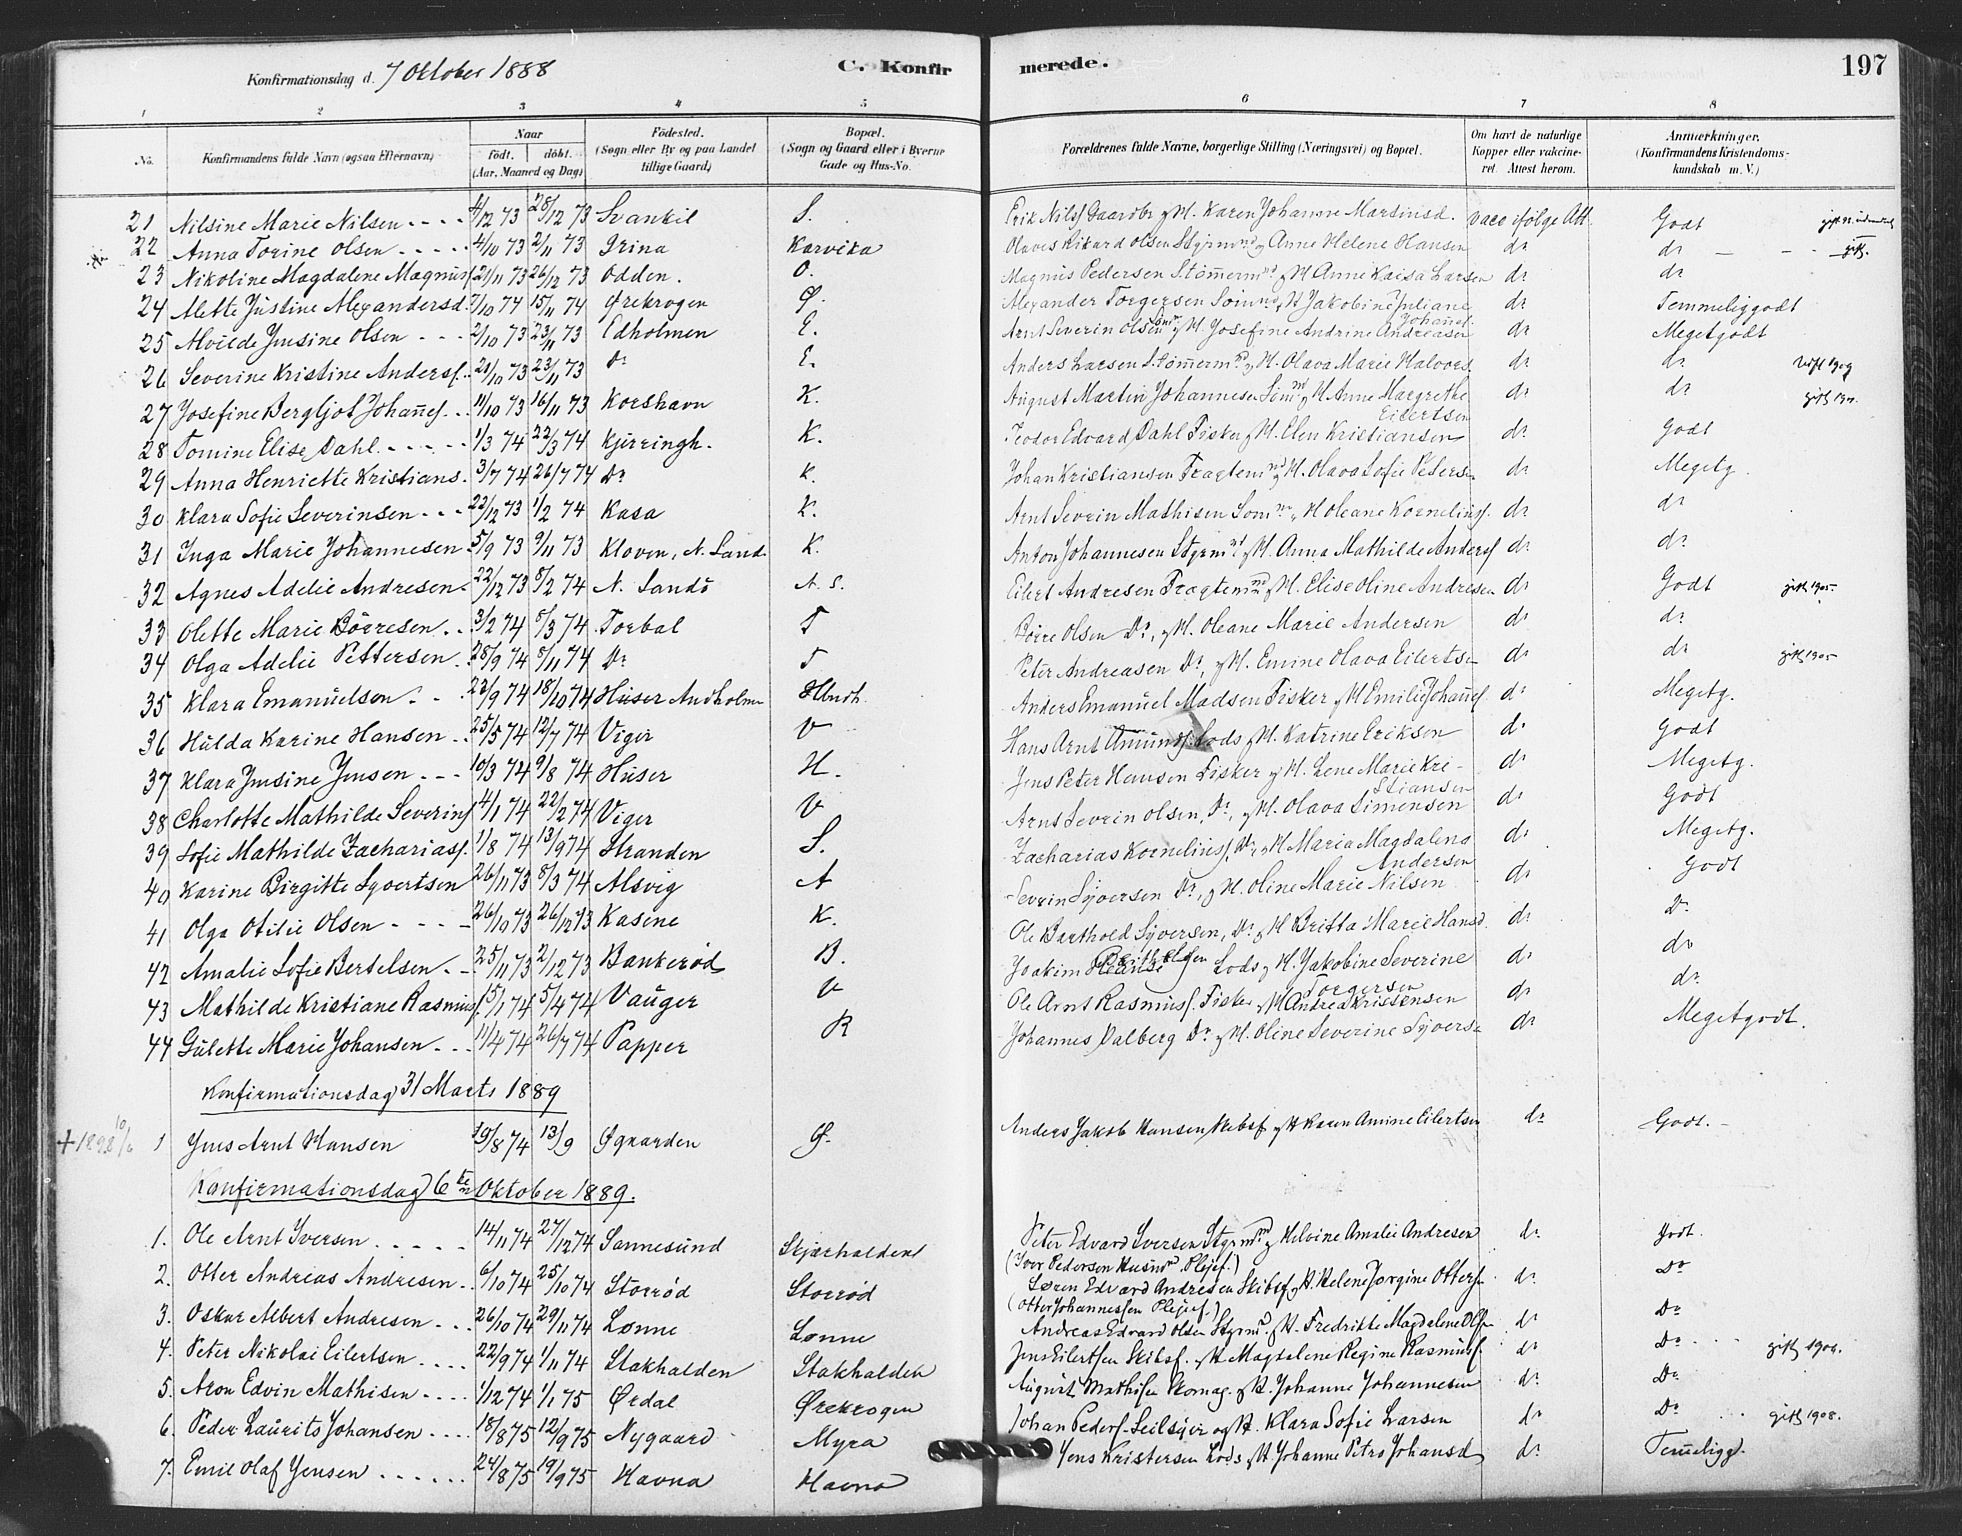 Konfirmationsdag d. 7 Oktober 1888 C. Konfir merede. 197
1 2 3 4 5 6 7 8
No. Konfirmandens fulde Navn (ogsaa Efternavn) Naar født. døbt. (Aar, Maaned og Dag) Fødested. (Sogn eller By og paa Landet tillige Gaard) Bopæl. (Sogn og Gaard eller i Byerne Gade og Hus-No. Forældrenes fulde Navne, borgerlige Stilling (Næringsvei) og Bopæl. Om havt de naturlige Kopper eller vakcineret. Attest herom. Anmærkninger. (Konfirmandens Kristendomskundskab m. V.)
21 Nilsine Marie Nilsen 4/12 73 28/12 73 Svankil S. Erik Nilss Gaardbr & H. Karen Johanne Martinsd. vacc ifölge Att. Godt
22 Anna Torine Olsen 4/10 73 2/11 73 Grina Karvika Olaves Rikard Olsen Styrmnd & Anne Helene Hansen dr dr gift.
23 Nikoline Magdalene Magnuss 21/11 73 26/12 73 Odden. O. Magnus Pedersen Stömermd & H Anne Kaisa Larsen dr dr
24 Mette Justine Alexandersd. 7/10 74 15/11 74 Ørekrogen Ø. Alexander Torgersen Sömnd & H Jakobine Juliane Johannes. dr Temmeliggodt
25 Alvilde Jensine Olsen 2/10 73 23/11 73 Edholmen E. Arnt Severin Olsen & H. Josefine Andrine Andreasen dr Megetgodt
26 Severine Kristine Anderss. 21/10 73 23/11 73 Dr E. Anders Larsen Stömermd & H. Olava Marie Halvors. dr dr gift 1909
27 Josefine Bergljot Johannes. 11/10 73 16/11 73 Korshavn K. August Martin Johannesen Sömnd & H Anne Margrethe Eilertsen dr dr
28 Tomine Elise Dahl 1/3 74 22/3 74 Kjirringh. K. Teodor Edvard Dahl Fisker & H. Elen Kristiansen dr Godt
29 Anna Henriette Kristians. 3/7 74 26/7 74 Dr K. Johan Kristiansen Fragtemnd & H. Olava Sofie Petersen dr Megetg.
30 Klara Sofie Severinsen 22/12 73 1/2 74 Kasa K. Arnt Sevrin Mathisen Sömnd & H Oleane Korneliuss. dr dr
31 Inga Marie Johannesen 5/9 73 9/11 73 Kloven, N. Sand. K. Anton Johannesen Styrmd & H. Anna Mathilde Anderss dr dr
32 Agnes Adelie Andresen 22/12 73 8/2 74 N. Sandö N. S. Eilert Andresen Fragtemnd & H. Elise Oline Andresen dr Godt gift 1905
33 Olette Marie Börresen 3/2 74 8/3 74 Torbal T Börre Olsen Dr, & H. Oleane Marie Andersen dr dr
34 Olga Adelie Pettersen 28/9 74 8/11 74 Dr T Peter Andreasen Dr, & H. Emine Olava Eilertsen dr dr gift 1905
35 Klara Emanuelsen 22/9 74 18/10 74 Huser Andholmen Hlndt. Anders Emanuel Madsen Fisker & H Emilie Johannes. dr Megetg.
36 Hulda Karine Hansen 25/5 74 12/7 74 Viger V Hans Arnt Amunds. Lods & H. Katrine Eriksen dr Godt
37 Klara Jensine Jensen 10/3 74 9/8 74 Huser H. Jens Peter Hansen Fisker & H. Lene Marie Kristiansen dr Megetg.
38 Charlotte Mathilde Severins 4/1 74 22/2 74 Viger V Arnt Sevrin Olsen, Dr, & H. Olava Simensen dr Godt
39 Sofie Mathilde Zachariass. 1/8 74 13/9 74 Stranden S. Zacharias Korneliuss. Dr & H Maria Magdalena Andersen dr Megetg.
40 Karine Birgitte Syvertsen 26/11 73 8/3 74 Alsvig A Sevrin Syversen Dr, & H. Oline Marie Nilsen dr Godt
41 Olga Otilie Olsen 26/10 73 26/12 73 Kasene K. Ole Barthold Syversen, Dr & H Britta Marie Hansd. dr Dr
42 Amalie Sofie Bertelsen 25/11 73 2/12 73 Bankerød B. Joakim Lods & H. Jakobine Severine Torgersen dr dr
43 Mathilde Kristiane Rasmuss. 15/1 74 5/4 74 Vauger V Ole Arnt Rasmuss. Fisker & H Andrea Kristensen dr dr
44 Gulette Marie Johansen 11/4 74 26/7 74 Papper R Johannes Dalberg Dr & H. Oline Severine Syvers. dr Megetgodt.
Konfirmationsdag 31 Marts 1889
+ 1898 10/6 1 Jens Arnt Hansen 19/8 74 13/9 Øgaarden Ø. Anders Jakob Hansen, Skibsf & H Karen Amine Eilertsen dr Godt.
Konfirmationsdag 6te Oktober 1889.
1. Ole Arnt Iversen 14/11 74 27/12 74 Sannesund Skjærhalden Peter Edvard Iversen Styrmnd & Helvine Amalie Andresen (Iver Pedersen Husmd Plejef.) dr Godt.
2. Otter Andreas Andresen 6/10 74 25/10 74 Storrød Storrød Søren Edvard Andresen Skibsf & H. Helene Jorgine Otters. (Otter Johannessen Plejef.) dr Dr
3. Oskar Albert Andresen 26/10 74 29/11 74 Lønne Lønne Andreas Edvard Olsen Styrmd. & H. Fredrikke Magdalene Olsen dr Dr
4. Peter Nikolai Eilertsen 22/9 74 1/11 74 Stakhalden Stakhalden Jens Eilertsen Skibsf. & H Magdalene Regine Rasmuss. dr Dr
5. Aron Edvin Mathisen 1/12 74 1/1 75 Ørdal Ørekrogen August Mathisen Skomag. & H. Johanne Johannesen dr Dr
6. Peder Laurits Johansen 18/8 75 12/9 75 Nygaard Myra Johan Peders. Seilsyer og H. Klara Sofie Larsen dr Dr gift 1908.
7. Emil Olaf Jensen 24/8 75 19/9 75 Havna Havna Jens Kristersen Lods & H Johanne Petra Johansd dr Temeligg.